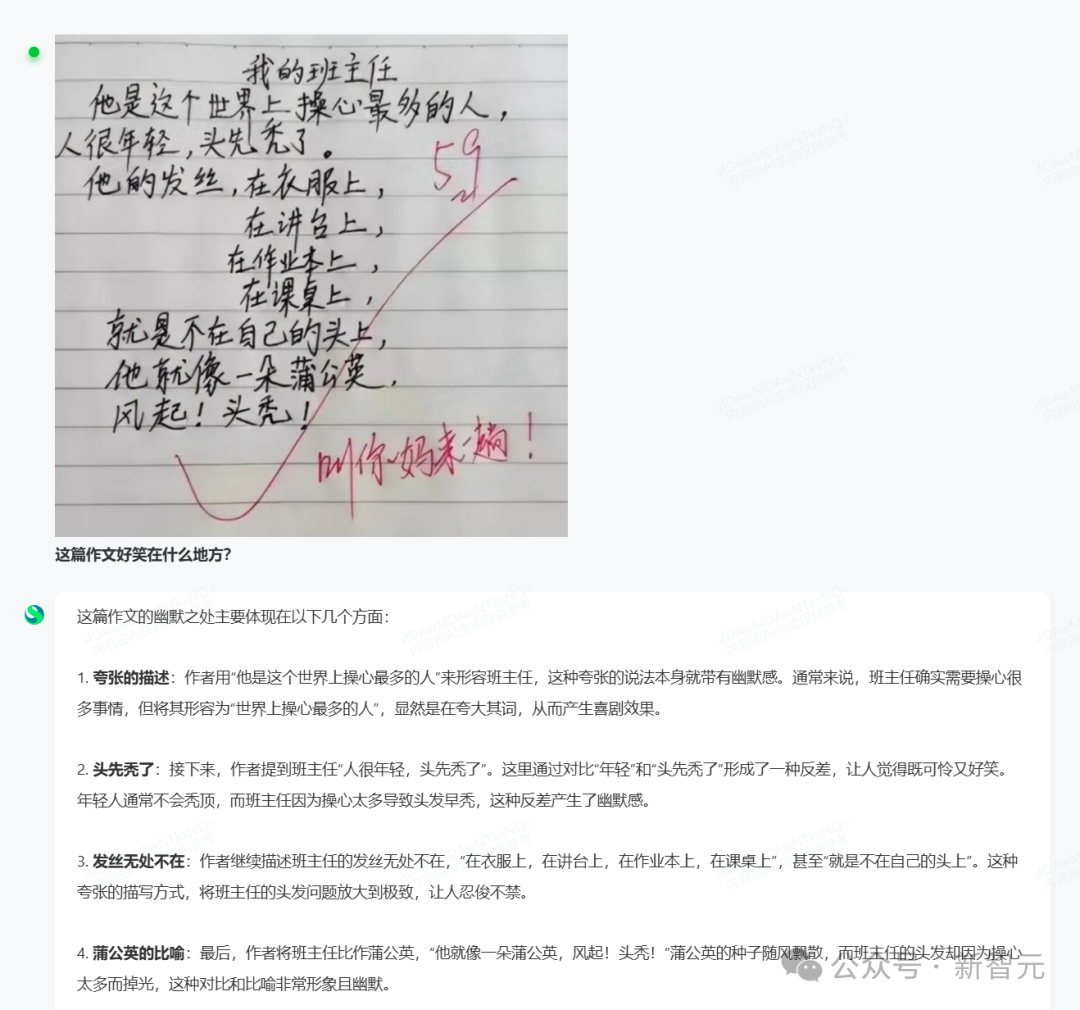 我的班主任
他是这个世界上操心最多的人，
人很年轻，头先秃了。
59
他的发丝，在衣服上，
在讲台上，
在作业本上，
在课桌上，
就是不在自己的头上，
他就像一朵蒲公英，
风起！头秃！
叫你妈来一趟！
这篇作文好笑在什么地方？
这篇作文的幽默之处主要体现在以下几个方面：
1. 夸张的描述：作者用“他是这个世界上操心最多的人”来形容班主任，这种夸张的说法本身就带有幽默感。通常来说，班主任确实需要操心很
多事情，但将其形容为“世界上操心最多的人”，显然是在夸大其词，从而产生喜剧效果。
2. 头先秃了：接下来，作者提到班主任“人很年轻，头先秃了”。这里通过对比“年轻”和“头先秃了”形成了一种反差，让人觉得既可怜又好笑。
年轻人通常不会秃顶，而班主任因为操心太多导致头发早秃，这种反差产生了幽默感。
3. 发丝无处不在：作者继续描述班主任的发丝无处不在，“在衣服上，在讲台上，在作业本上，在课桌上”，甚至“就是不在自己的头上”。这种
夸张的描写方式，将班主任的头发问题放大到极致，让人忍俊不禁。
4. 蒲公英的比喻：最后，作者将班主任比作蒲公英，“他就像一朵蒲公英，风起！头秃！”蒲公英的种子随风飘散，而班主任的头发却因为操心
太多而掉光，这种对比和比喻非常形象且幽默。
公众号 · 新智元